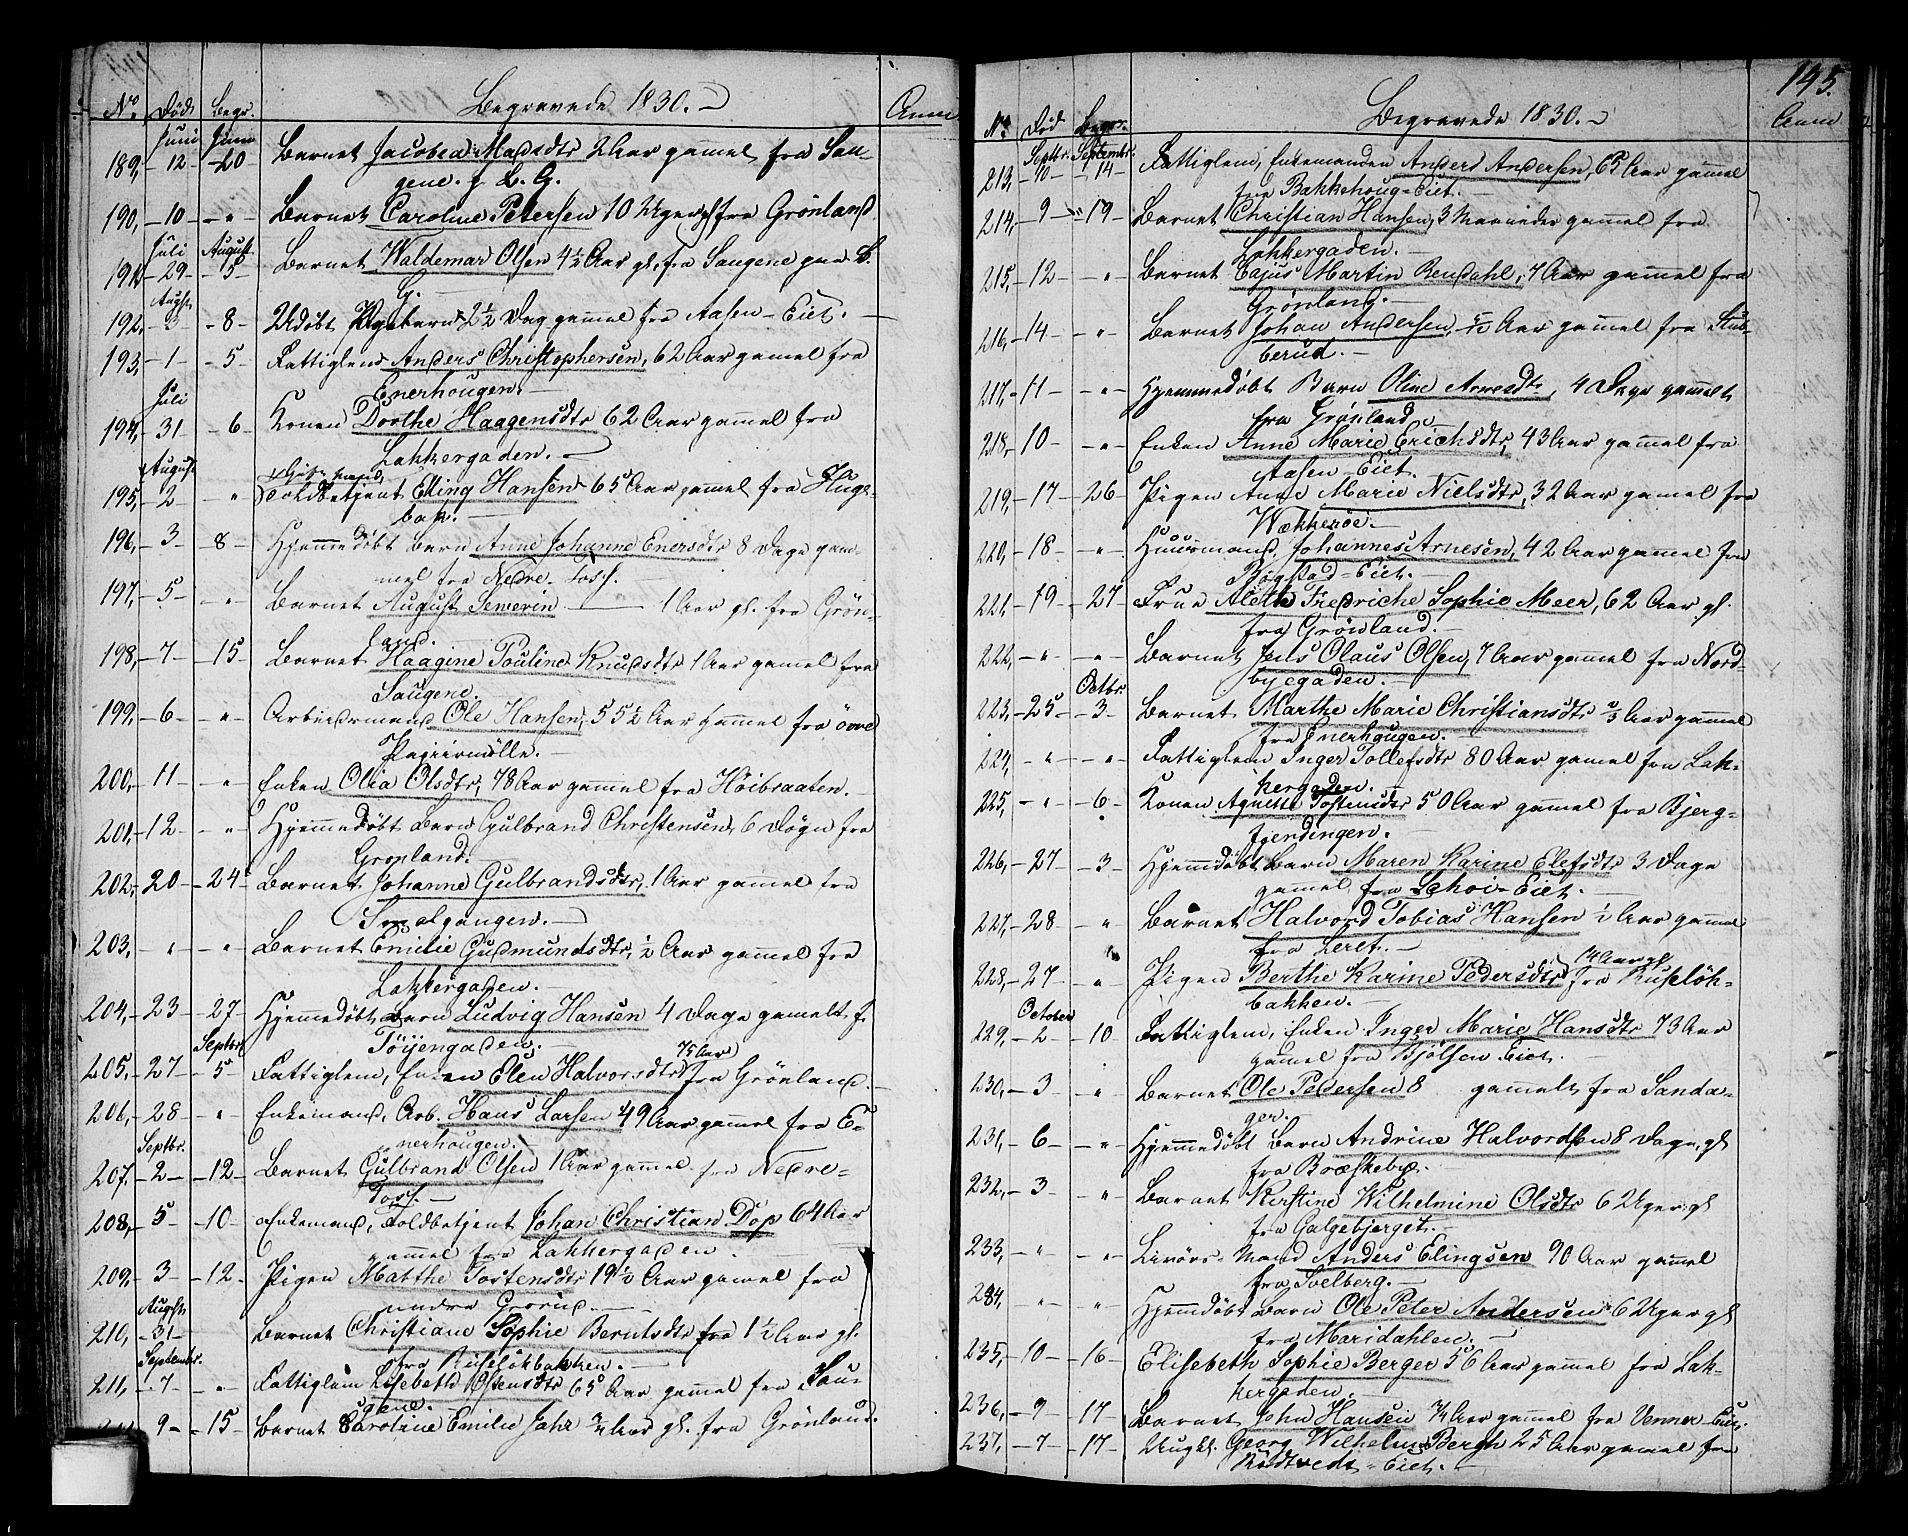 Begravede 1830.
No Død Begr. Anm
Juni Juni
189, 12 20 Barnet Jacobea Madsdtr 2 Aar gamel fra Sau-
gene. p L. G.
190, 10 " Barnet Caroline Petersen 10 Uger gl fra Grønland
Juli August
191, 29 5 Barnet Waldemar Olsen 4½ Aar gl. fra Saugene paa L.
G.
Augst
192, 3 8 Udøbt Pigebarn 2½ Dag gammel fra Aasen-Eiet.
193, 1 5 Fattiglem Anders Christophersen, 62 Aar gamel fra
Enerhougen.
Juli
194, 31 6 Konen Dorthe Haagensdtr 62 Aar gammel fra
Lakkergaden.
August
195, 2 " Toldbetjent Elling Hansen 65 Aar gammel fra
196, 3 8 Hjemmedøbt Barn Anne Johanne Enersdtr 8 Dage gam-
mel fra Nedre-Foss.
197, 5 " Barnet August Sewerin 1 Aar gl. fra Grøn-
land.
198, 7 15 Barnet Haagine Pouline Knudsdtr 1 Aar gammel fra
Saugene.
199, 6 " Arbeidsmand Ole Hansen, 55½ Aar gammel fra øvre
Papirmølle.
200, 11 " Enken Olia Olsdtr, 78 Aar gammel fra Høibraaten.
201, 12 " Hjemmedøbt Barn Gulbrand Christensen, 6 Døgn fra
Grønland.
202, 20 24 Barnet Johanne Gulbrandsdtr, 1 Aar gammel fra
Smalgangen.
203, " " Barnet Emilie Gudmundsdtr, ½ Aar gammel fra
Lakkergaden.
204, 23 27 Hjemedøbt Barn Ludvig Hansen 4 Dage gamelt f.
Tøyengaden.
Septbr 75 Aar
205, 27 5 Fattiglem, Enken Elen Halvorsdtr fra Grønland.
206, 28 " Enkemand, Arb. Hans Larsen 49 Aar gammel fra E-
nerhougen.
Septbr.
207, 2 12 Barnet Gulbrand Olsen 1 Aar gammel fra Nedre-
Foss.
208, 5 10 Enkemand, Toldbetjent Johan Christian Dop 64 Aar
gammel fra Lakkergaden.
209, 3 12 Pigen Matthe Tostensdtr 19½ Aar gammel fra
nedre Grorud.
Augst
210, 31 Barnet Christiane Sophie Berntsdtr fra 1½ Aar gl.
fra Ruseløkbakken.
Septembr.
211, 7 " Fattiglem Lisebeth Ostensdtr 65 Aar gammel fra Sau-
gene.
9 15 Barnet Caroline Emilie Jahr ¾ Aar gl. fra Grønland.
145.
Begravede 1830.
No Død Begr. Anm
Septbr. Septembr.
213, 10 14 Fattiglem, Enkemanden Anders Andersen, 65 Aar gammel
fra Bakkehoug-Eiet.
214, 9 19 Barnet Christian Hansen, 3 Maaneder gammel fra
Lakkergaden.
215, 12 " Barnet Cajus Martin Rendahl, 7 Aar gammel fra
Grønland.
216, 14 " Barnet Johan Andersen, Aar gammel fra Stub-
berud.
217, 11 " Hjemmedøbt Barn Oline Arnesdtr, 4 Dage gammelt
fra Grønland
218, 10 " Enken Anne Marie Erichsdtr, 43 Aar gammel fra
Aasen-Eiet.
219, 17 26 Pigen Anne Marie Nielsdtr, 32 Aar gammel fra
Wækkerøe.
220, 18 " Huusmand, Johannes Arnesen, 42 Aar gammel fra
Bogstad-Eiet.
221, 19 27 Frue Alethe Fredriche Sophie Meer, 62 Aar gl.
fra Grønland.
222, " " Barnet Jens Olaus Olsen, 7 Aar gammel fra Nord-
byegaden.
Octbr.
223, 25 3 Barnet Marthe Marie Christiansdtr ⅔ Aar gammel
fra Enerhaugen.
224, " " Fattiglem Inger Tollefsdtr 80 Aar gammel fra Lak-
kergaden
225, " 6 Konen Agnethe Tostensdtr 50 Aar gammel fra Bjerg-
fjerdingen.
226, 27 3 Hjemdøbt Barn Maren Karine Elefsdtr 3 Dage
gamel fra Schoi-Eiet.
227, 28 " Barnet Halvord Tobias Hansen ½ Aar gammel
fra Leret.
228, 27 " Pigen Berthe Karine Pedersdtr fra Ruseløk-
bakken.
October
229, 2 10 Fattiglem, Enken Inger Marie Hansdtr 73 Aar
gammel fra Bjølsen Eiet.
230, 3 " Barnet Ole Pedersen 8 gammelt fra Sanda-
ger.
231, 6 " Hjemmedøbt Barn Andrine Halvordsen 8 Dage gl
fra Bræskebye.
232, 3 " Barnet Kirstine Wilhelmine Olsdtr 6 Uger gl
fra Galgebjerget.
233, " " Livørs-Mand Anders Elingsen 90 Aar gammel
fra Svelberg.
234, " " Hjemdøbt Barn Ole Peter Andersen 6 Uger gl
fra Maridahlen.
235, 10 16 Elisebeth Sophie Berger 56 Aar gammel fra Lak-
kergaden.
236, 9 17 Barnet John Hansen ¾ Aar gammel fra Venner-Eie.
237, 7 17 Ungkl. Georg Wilhelm Bergh 25 Aar gammel fra
Rødtvedt-Eiet.